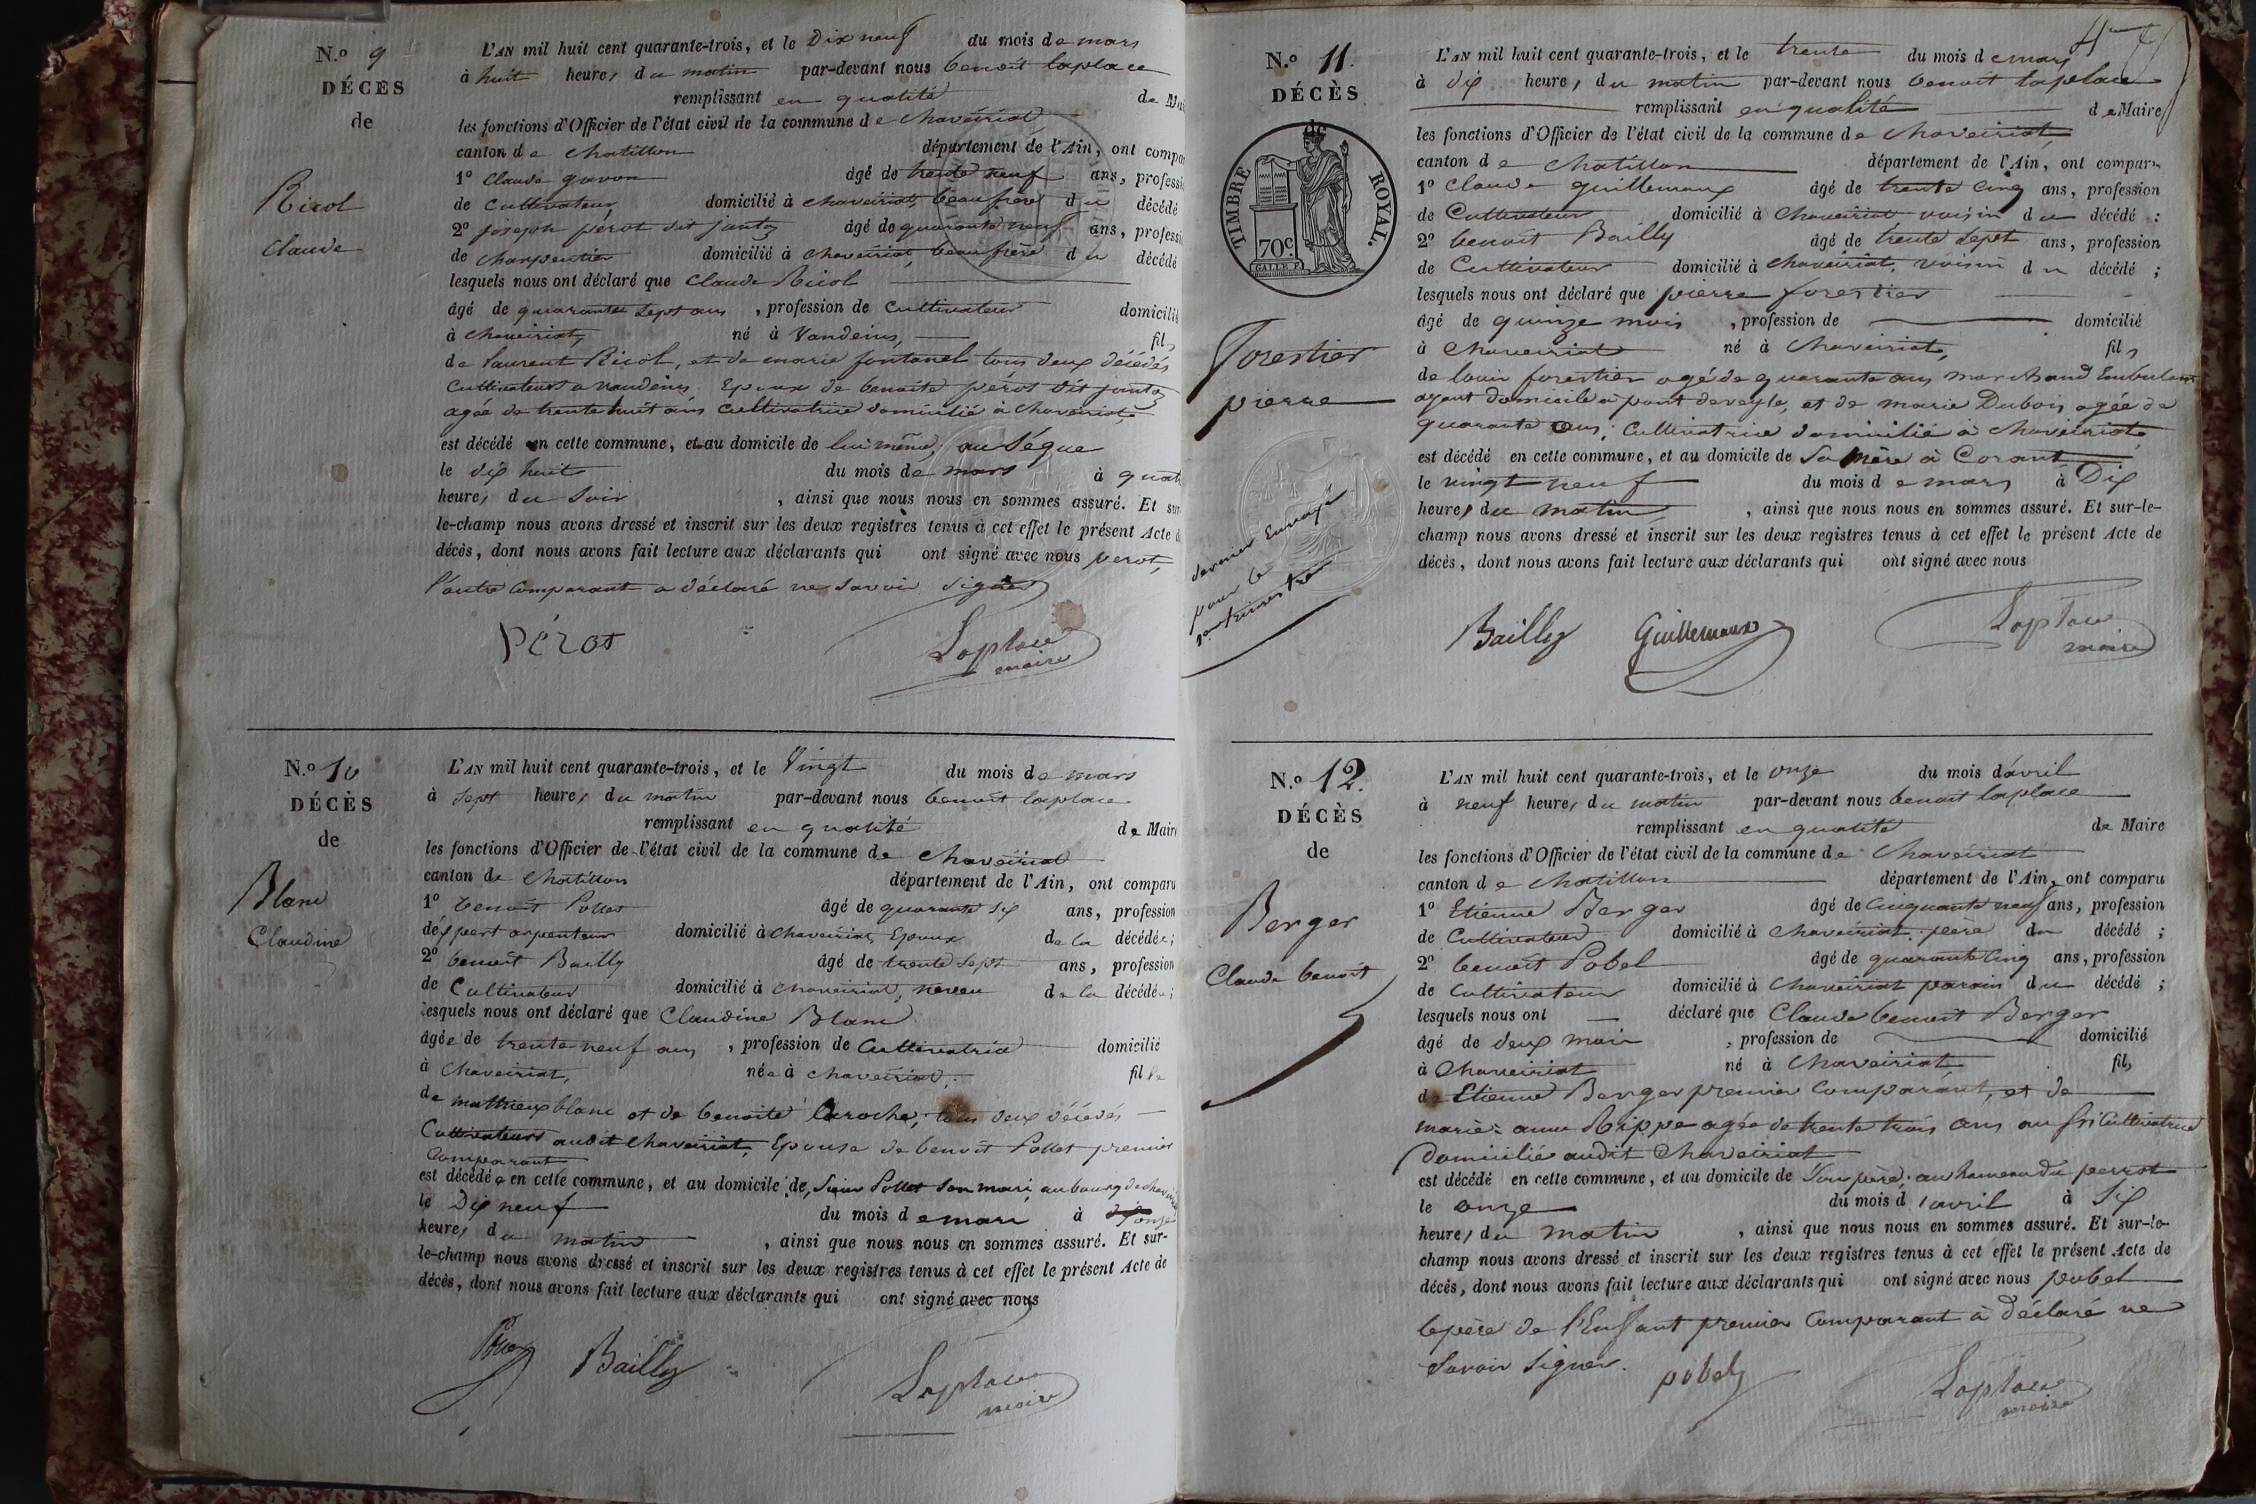 N.o 9
DÉCÈS
de
Ricol
Claude
L'AN mil huit cent quarante-trois, et le Dix neuf du mois de mars
à huit heures du matin par-devant nous benoit laplace
remplissant en qualité de Mai
les fonctions d'Officier de l'état civil de la commune de chaveiriat
canton de chatillon département de l'Ain, ont compar
1o Claude gavon âgé de trente neuf ans, professi
de Cultivateur domicilié à chaveiriat, beaufrère du décédé
2o joseph perot dit jantoz âgé de quarante neuf ans, professi
de charpentier domicilié à chaveiriat, beaufrère du décédé
lesquels nous ont déclaré que Claude Ricol
âgé de quarante sept ans, profession de Cultivateur domicilié
à chaveiriat, né à Vandeins, fils
de laurent Ricol, et de marie fontanel tous deux décédés
Cultivateurs a vandeins Epoux de benoite pérot dit jantoz
agée de trente huit ans cultivatrice domicilié à chaveiriat,
est décédé en cette commune, et au domicile de lui même, au Ségue
le dix huit du mois de mars à quat
heures du Soir, ainsi que nous nous en sommes assuré. Et sur
le-champ nous avons dressé et inscrit sur les deux registres tenus à cet effet le présent Acte d
décès, dont nous avons fait lecture aux déclarants qui ont signé avec nous perot,
l'autre Comparant a déclaré ne savoir signer
Pérot Laplace
maire
N.o 10
DÉCÈS
de
Blanc
Claudine
L'AN mil huit cent quarante-trois, et le Vingt du mois de mars
à sept heures du matin par-devant nous benoit laplace
remplissant en qualité de Maire
les fonctions d'Officier de l'état civil de la commune de chaveiriat
canton de chatillon département de l'Ain, ont comparu
1o benoit Pollet âgé de quarante six ans, profession
d'éxpert arpenteur domicilié à chaveiriat, Epoux de la décédée;
2o benoit Bailly âgé de trente sept ans, profession
de Cultivateur domicilié à chaveiriat, neveu de la décédée;
lesquels nous ont déclaré que Claudine Blanc
âgée de trente neuf ans, profession de Cultivatrice domicilié
à chaveiriat, née à chaveiriat, fille
de matthieux blanc et de benoite laroche, tous deux décédés
Cultivateurs audit Chaveiriat, Epouse de benoit Pollet premier
Comparant
est décédée en cette commune, et au domicile de, Pollet son mari, au bourg de
le Dix neuf du mois de mars à onze
heures du matin, ainsi que nous nous en sommes assuré. Et sur-
le-champ nous avons dressé et inscrit sur les deux registres tenus à cet effet le présent Acte de
décès, dont nous avons fait lecture aux déclarants qui ont signé avec nous
Bailly Laplace
maire
N.o 11.
DÉCÈS
de
TIMBRE ROYAL.
70c.
GALLE F.
Forestier
pierre
dernier Envoyé
pour le
1er trimestre
L'AN mil huit cent quarante-trois, et le trente du mois de mars
à dix heures du matin par-devant nous benoit laplace
remplissant en qualité de Maire
les fonctions d'Officier de l'état civil de la commune de chaveiriat,
canton de Chatillon département de l'Ain, ont comparu
1o Claude guillemaux âgé de trente cinq ans, profession
de Cultivateur domicilié à chaveiriat voisin du décédé;
2o benoit Bailly âgé de trente sept ans, profession
de Cultivateur domicilié à chaveiriat, voisin du décédé;
lesquels nous ont déclaré que pierre forestier
âgé de quinze mois, profession de domicilié
à chaveiriat né à chaveiriat, fils
de louis forestier agé de quarante ans marchand Embulant
ayant domicile a pont deveyle, et de marie Dubois agée de
quarante ans, Cultivatrice domicilié à chaveiriat,
est décédé en cette commune, et au domicile de Sa mère à Corant
le vingt neuf du mois de mars à Dix
heures du matin, ainsi que nous nous en sommes assuré. Et sur-le-
champ nous avons dressé et inscrit sur les deux registres tenus à cet effet le présent Acte de
décès, dont nous avons fait lecture aux déclarants qui ont signé avec nous
Bailly Guillemaux Laplace
maire
N.o 12.
DÉCÈS
de
Berger
Claude benoit
L'AN mil huit cent quarante-trois, et le onze du mois d'avril
à neuf heures du matin par-devant nous benoit laplace
remplissant en qualité de Maire
les fonctions d'Officier de l'état civil de la commune de chaveiriat
canton de chatillon département de l'Ain, ont comparu
1o Etienne Berger âgé de Cinquante neuf ans, profession
de Cultivateur domicilié à chaveiriat, père du décédé;
2o benoit Pobel âgé de quarante cinq ans, profession
de Cultivateur domicilié à Chaveiriat parain du décédé;
lesquels nous ont déclaré que Claude benoit Berger
âgé de deux mois, profession de domicilié
à Chaveiriat né à Chaveiriat fils
de Etienne Berger premier Comparant, et de
marie-anne Rippe agée de trente trois ans Cultivatrice
domicilié audit Chaveiriat
est décédé en cette commune, et au domicile de Son père, au hameau du perrot
le onze du mois d'avril à Six
heures du matin, ainsi que nous nous en sommes assuré. Et sur-le-
champ nous avons dressé et inscrit sur les deux registres tenus à cet effet le présent Acte de
décès, dont nous avons fait lecture aux déclarants qui ont signé avec nous pobel
le père de l'Enfant premier Comparant à déclaré ne
Savoir Signer. pobel Laplace
maire